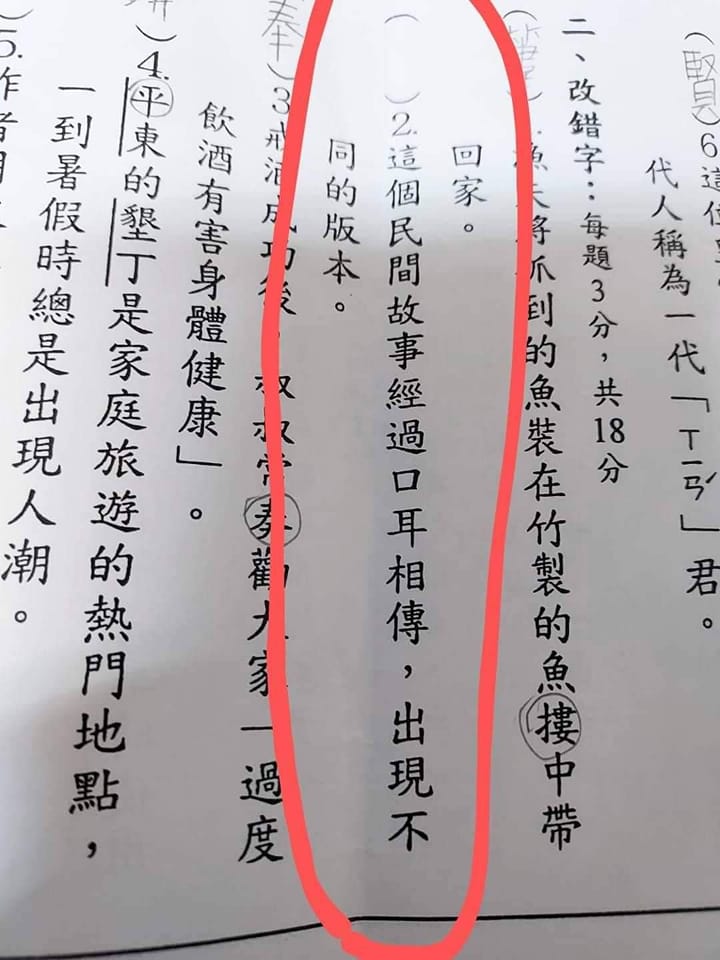 (賢)6.這位
代人稱為一代「ㄒㄧㄢˊ」君。
二、改錯字：每題3分，共18分
(簍)1.漁夫將抓到的魚裝在竹製的魚摟中帶
回家。
( )2.這個民間故事經過口耳相傳，出現不
同的版本。
(奉)3.戒酒成功後，叔叔常奏勸大家「過度
飲酒有害身體健康」。
)4.平東的墾丁是家庭旅遊的熱門地點，
一到暑假時總是出現人潮。
5.作者